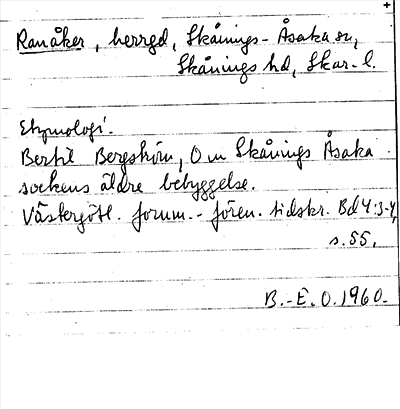 Ranåker, herrgd, Skånings-Åsaka sn,
Skånings hd, Skar. l.
Etymologi.
Bertil Bergström, Om Skånings Åsaka
sockens äldre bebyggelse.
Västergötl. fornm.-fören. tidskr. Bd 4:3-4,
s. 55.
B.-E. O. 1960.